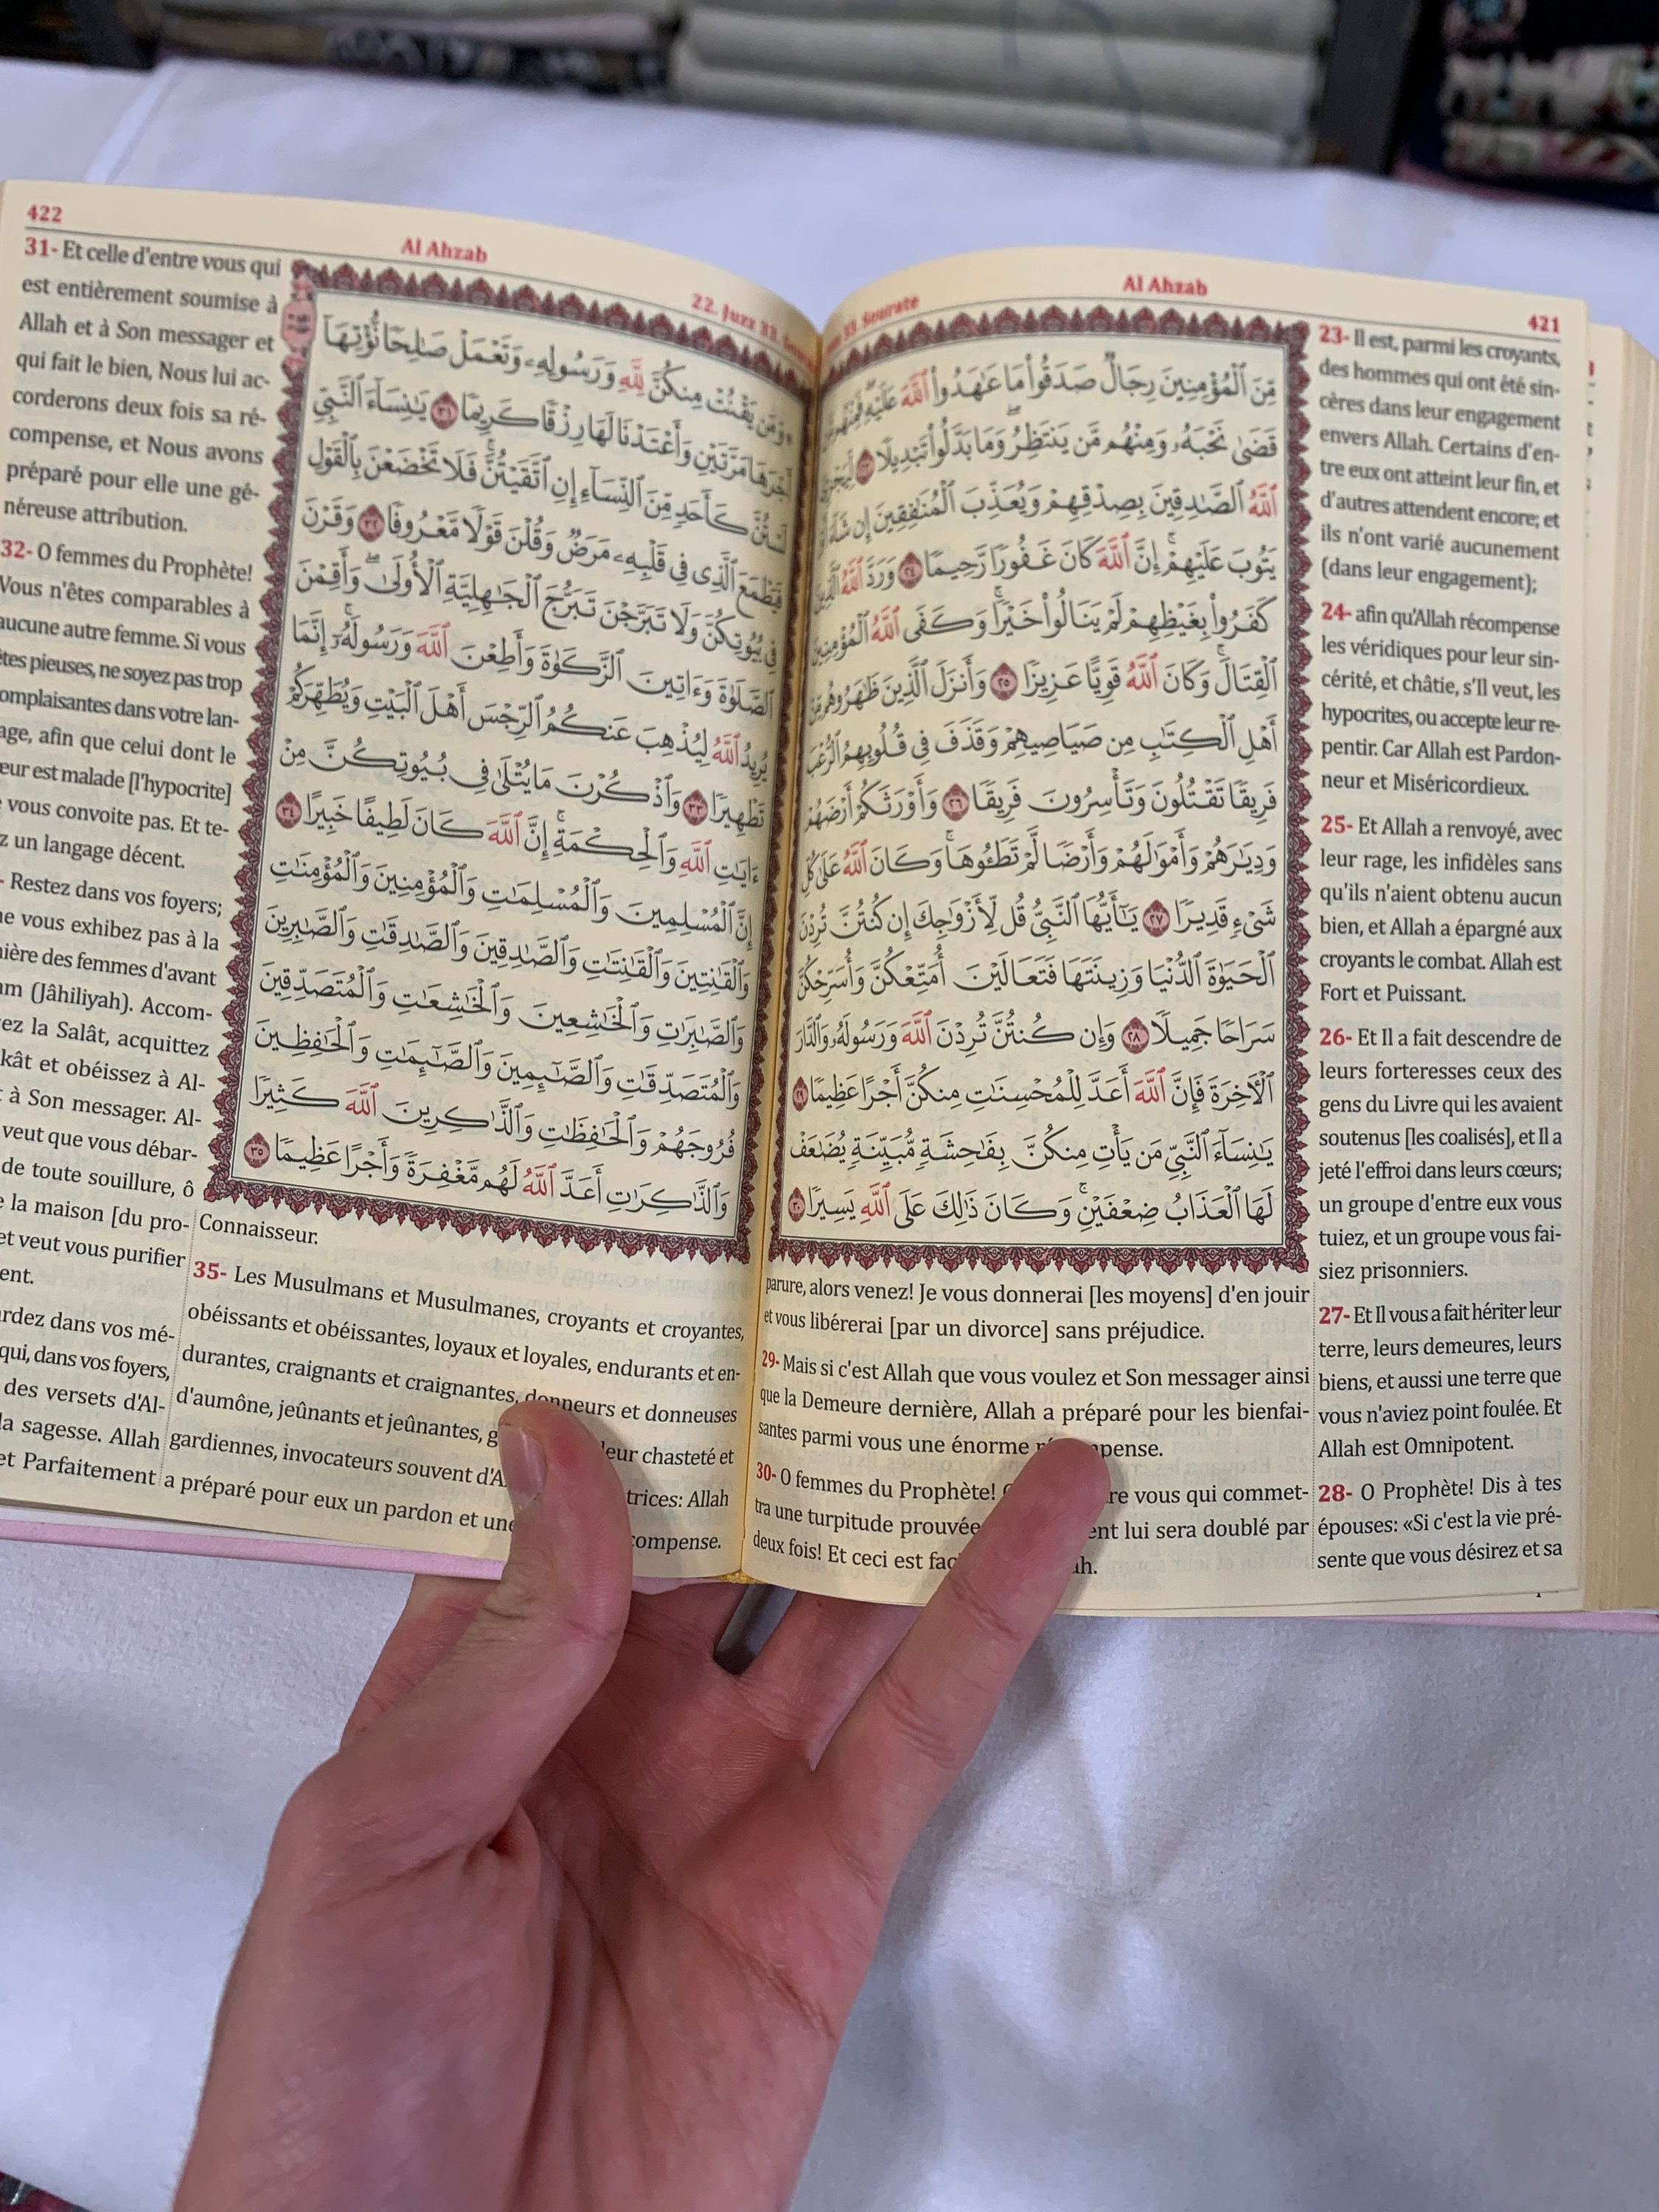 Al Ahzab
421
مِّنَ ٱلْمُؤْمِنِينَ رِجَالٌ صَدَقُوا۟ مَا عَٰهَدُوا۟ ٱللَّهَ عَلَيْهِ ۖ فَمِنْهُم مَّن
قَضَىٰ نَحْبَهُۥ وَمِنْهُم مَّن يَنتَظِرُ ۖ وَمَا بَدَّلُوا۟ تَبْدِيلًا ٢٣ لِّيَجْزِىَ
ٱللَّهُ ٱلصَّٰدِقِينَ بِصِدْقِهِمْ وَيُعَذِّبَ ٱلْمُنَٰفِقِينَ إِن شَآءَ أَوْ
يَتُوبَ عَلَيْهِمْ ۚ إِنَّ ٱللَّهَ كَانَ غَفُورًا رَّحِيمًا ٢٤ وَرَدَّ ٱللَّهُ ٱلَّذِينَ
كَفَرُوا۟ بِغَيْظِهِمْ لَمْ يَنَالُوا۟ خَيْرًا ۚ وَكَفَى ٱللَّهُ ٱلْمُؤْمِنِينَ
ٱلْقِتَالَ ۚ وَكَانَ ٱللَّهُ قَوِيًّا عَزِيزًا ٢٥ وَأَنزَلَ ٱلَّذِينَ ظَٰهَرُوهُم مِّنْ
أَهْلِ ٱلْكِتَٰبِ مِن صَيَاصِيهِمْ وَقَذَفَ فِى قُلُوبِهِمُ ٱلرُّعْبَ
فَرِيقًا تَقْتُلُونَ وَتَأْسِرُونَ فَرِيقًا ٢٦ وَأَوْرَثَكُمْ أَرْضَهُمْ
وَدِيَٰرَهُمْ وَأَمْوَٰلَهُمْ وَأَرْضًا لَّمْ تَطَـُٔوهَا ۚ وَكَانَ ٱللَّهُ عَلَىٰ كُلِّ
شَىْءٍ قَدِيرًا ٢٧ يَٰٓأَيُّهَا ٱلنَّبِىُّ قُل لِّأَزْوَٰجِكَ إِن كُنتُنَّ تُرِدْنَ
ٱلْحَيَوٰةَ ٱلدُّنْيَا وَزِينَتَهَا فَتَعَالَيْنَ أُمَتِّعْكُنَّ وَأُسَرِّحْكُنَّ
سَرَاحًا جَمِيلًا ٢٨ وَإِن كُنتُنَّ تُرِدْنَ ٱللَّهَ وَرَسُولَهُۥ وَٱلدَّارَ
ٱلْـَٔاخِرَةَ فَإِنَّ ٱللَّهَ أَعَدَّ لِلْمُحْسِنَٰتِ مِنكُنَّ أَجْرًا عَظِيمًا ٢٩
يَٰنِسَآءَ ٱلنَّبِىِّ مَن يَأْتِ مِنكُنَّ بِفَٰحِشَةٍ مُّبَيِّنَةٍ يُضَٰعَفْ
لَهَا ٱلْعَذَابُ ضِعْفَيْنِ ۚ وَكَانَ ذَٰلِكَ عَلَى ٱللَّهِ يَسِيرًا ٣٠
23- Il est, parmi les croyants,
des hommes qui ont été sin-
cères dans leur engagement
envers Allah. Certains d'en-
tre eux ont atteint leur fin, et
d'autres attendent encore; et
ils n'ont varié aucunement
(dans leur engagement);
24- afin qu'Allah récompense
les véridiques pour leur sin-
cérité, et châtie, s'Il veut, les
hypocrites, ou accepte leur re-
pentir. Car Allah est Pardon-
neur et Miséricordieux.
25- Et Allah a renvoyé, avec
leur rage, les infidèles sans
qu'ils n'aient obtenu aucun
bien, et Allah a épargné aux
croyants le combat. Allah est
Fort et Puissant.
26- Et Il a fait descendre de
leurs forteresses ceux des
gens du Livre qui les avaient
soutenus [les coalisés], et Il a
jeté l'effroi dans leurs cœurs;
un groupe d'entre eux vous
tuiez, et un groupe vous fai-
siez prisonniers.
27- Et Il vous a fait hériter leur
terre, leurs demeures, leurs
biens, et aussi une terre que
vous n'aviez point foulée. Et
Allah est Omnipotent.
28- O Prophète! Dis à tes
épouses: «Si c'est la vie pré-
sente que vous désirez et sa
parure, alors venez! Je vous donnerai [les moyens] d'en jouir
et vous libérerai [par un divorce] sans préjudice.
29- Mais si c'est Allah que vous voulez et Son messager ainsi
que la Demeure dernière, Allah a préparé pour les bienfai-
santes parmi vous une énorme
30- O femmes du Prophète! vous qui commet-
tra une turpitude prouvée lui sera doublé par
deux fois! Et ceci est
422
Al Ahzab
22. Juzz 33.
Sourate
وَمَن يَقْنُتْ مِنكُنَّ لِلَّهِ وَرَسُولِهِۦ وَتَعْمَلْ صَٰلِحًا نُّؤْتِهَآ
أَجْرَهَا مَرَّتَيْنِ وَأَعْتَدْنَا لَهَا رِزْقًا كَرِيمًا ٣١ يَٰنِسَآءَ ٱلنَّبِىِّ
لَسْتُنَّ كَأَحَدٍ مِّنَ ٱلنِّسَآءِ ۚ إِنِ ٱتَّقَيْتُنَّ فَلَا تَخْضَعْنَ بِٱلْقَوْلِ
فَيَطْمَعَ ٱلَّذِى فِى قَلْبِهِۦ مَرَضٌ وَقُلْنَ قَوْلًا مَّعْرُوفًا ٣٢ وَقَرْنَ
فِى بُيُوتِكُنَّ وَلَا تَبَرَّجْنَ تَبَرُّجَ ٱلْجَٰهِلِيَّةِ ٱلْأُولَىٰ ۖ وَأَقِمْنَ
ٱلصَّلَوٰةَ وَءَاتِينَ ٱلزَّكَوٰةَ وَأَطِعْنَ ٱللَّهَ وَرَسُولَهُۥٓ ۚ إِنَّمَا
يُرِيدُ ٱللَّهُ لِيُذْهِبَ عَنكُمُ ٱلرِّجْسَ أَهْلَ ٱلْبَيْتِ وَيُطَهِّرَكُمْ
تَطْهِيرًا ٣٣ وَٱذْكُرْنَ مَا يُتْلَىٰ فِى بُيُوتِكُنَّ مِنْ
ءَايَٰتِ ٱللَّهِ وَٱلْحِكْمَةِ ۚ إِنَّ ٱللَّهَ كَانَ لَطِيفًا خَبِيرًا ٣٤
إِنَّ ٱلْمُسْلِمِينَ وَٱلْمُسْلِمَٰتِ وَٱلْمُؤْمِنِينَ وَٱلْمُؤْمِنَٰتِ
وَٱلْقَٰنِتِينَ وَٱلْقَٰنِتَٰتِ وَٱلصَّٰدِقِينَ وَٱلصَّٰدِقَٰتِ وَٱلصَّٰبِرِينَ
وَٱلصَّٰبِرَٰتِ وَٱلْخَٰشِعِينَ وَٱلْخَٰشِعَٰتِ وَٱلْمُتَصَدِّقِينَ
وَٱلْمُتَصَدِّقَٰتِ وَٱلصَّٰٓئِمِينَ وَٱلصَّٰٓئِمَٰتِ وَٱلْحَٰفِظِينَ
فُرُوجَهُمْ وَٱلْحَٰفِظَٰتِ وَٱلذَّٰكِرِينَ ٱللَّهَ كَثِيرًا
وَٱلذَّٰكِرَٰتِ أَعَدَّ ٱللَّهُ لَهُم مَّغْفِرَةً وَأَجْرًا عَظِيمًا ٣٥
31- Et celle d'entre vous qui
est entièrement soumise à
Allah et à Son messager et
qui fait le bien, Nous lui ac-
corderons deux fois sa ré-
compense, et Nous avons
préparé pour elle une gé-
néreuse attribution.
32- O femmes du Prophète!
Vous n'êtes comparables à
aucune autre femme. Si vous
êtes pieuses, ne soyez pas trop
omplaisantes dans votre lan-
age, afin que celui dont le
œur est malade [l'hypocrite]
vous convoite pas. Et te-
z un langage décent.
- Restez dans vos foyers;
ne vous exhibez pas à la
ière des femmes d'avant
am (Jâhiliyah). Accom-
ez la Salât, acquittez
kât et obéissez à Al-
à Son messager. Al-
veut que vous débar-
de toute souillure, ô
la maison [du pro-
et veut vous purifier
ent.
rdez dans vos mé-
qui, dans vos foyers,
des versets d'Al-
la sagesse. Allah
et Parfaitement
Connaisseur.
35- Les Musulmans et Musulmanes, croyants et croyantes,
obéissants et obéissantes, loyaux et loyales, endurants et en-
durantes, craignants et craignantes, donneurs et donneuses
d'aumône, jeûnants et jeûnantes, leur chasteté et
gardiennes, invocateurs souvent trices: Allah
a préparé pour eux un pardon et une compense.